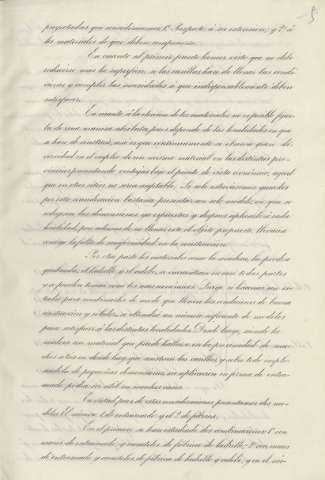 proyectadas que consideramos 1º Respecto á su extension; y 2º á
los materiales de que deben componerse.
En cuanto al primer punto hemos visto que no debe
reducirse mas la superficie, si las casillas han de llenar las condi-
ciones y cumplir las necesidades á que indispensablemente deben
satisfacer.
En cuanto á la eleccion de los materiales no es posible fijarla
de una manera absoluta, pues depende de las localidades en que
se hace de construir, asi es que continuamente se observa gran di-
versidad en el empleo de un mismo material en las distintas pro-
vincias, produciendo ventajas bajo el punto de vista económico, aquel
que en otros sitios no seria aceptable. Si solo estuviesemos guiados
por esta consideracion bastaria presentar un solo modelo, en que se
fijasen las dimensiones que
localidad, pero ademas de no llenar este el objeto propuesto, llevaria
consigo la falta de uniformidad en la construccion.
Por otra parte los materiales como la madera, la piedra
quebrada, el ladrillo y el adobe, se encuentran en casi todas partes
y se pueden tomar como los mas económicos. Surge
tudio para combinarlos de modo que llenen las condiciones de buena
construccion y solidez, y obtener un número suficiente de modelos
para satisfacer á las distintas localidades. Desde luego, siendo la
madera un material que puede hallarse en la proximidad de mu-
chos sitios en donde haya que construir las casillas, y sobre todo emple-
andola de pequeñas dimensiones, su aplicacion en forma de entra-
mado podra ser util en muchos casos.
En virtud pues de estas consideraciones, presentamos dos mo-
delos. El número 1 de entramado y el 2º de fábrica.
En el primero se han estudiado dos combinaciones 1ª con
muros de entramado y maceteles de fábrica de ladrillo; 2ª con muros
de entramado y maceteles de fábrica de ladrillo y adobe; y en el nú-